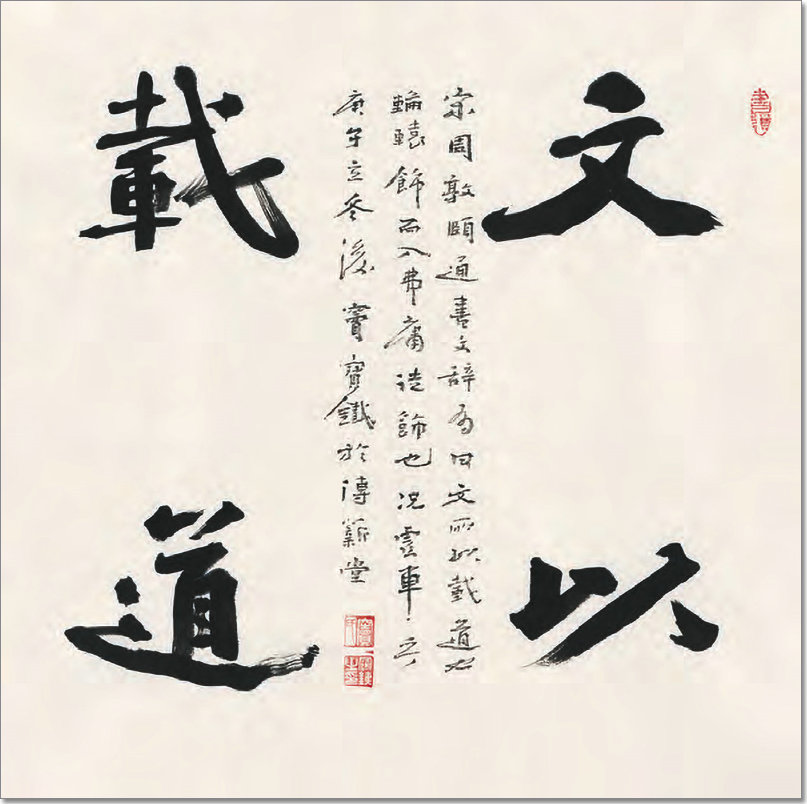 文以
宋周敦頤通書文辭為曰文所以載道也
輪轅飾而人弗庸徒飾也况虛車乎
庚午立冬後竇寶鐵於傳薪堂
載道